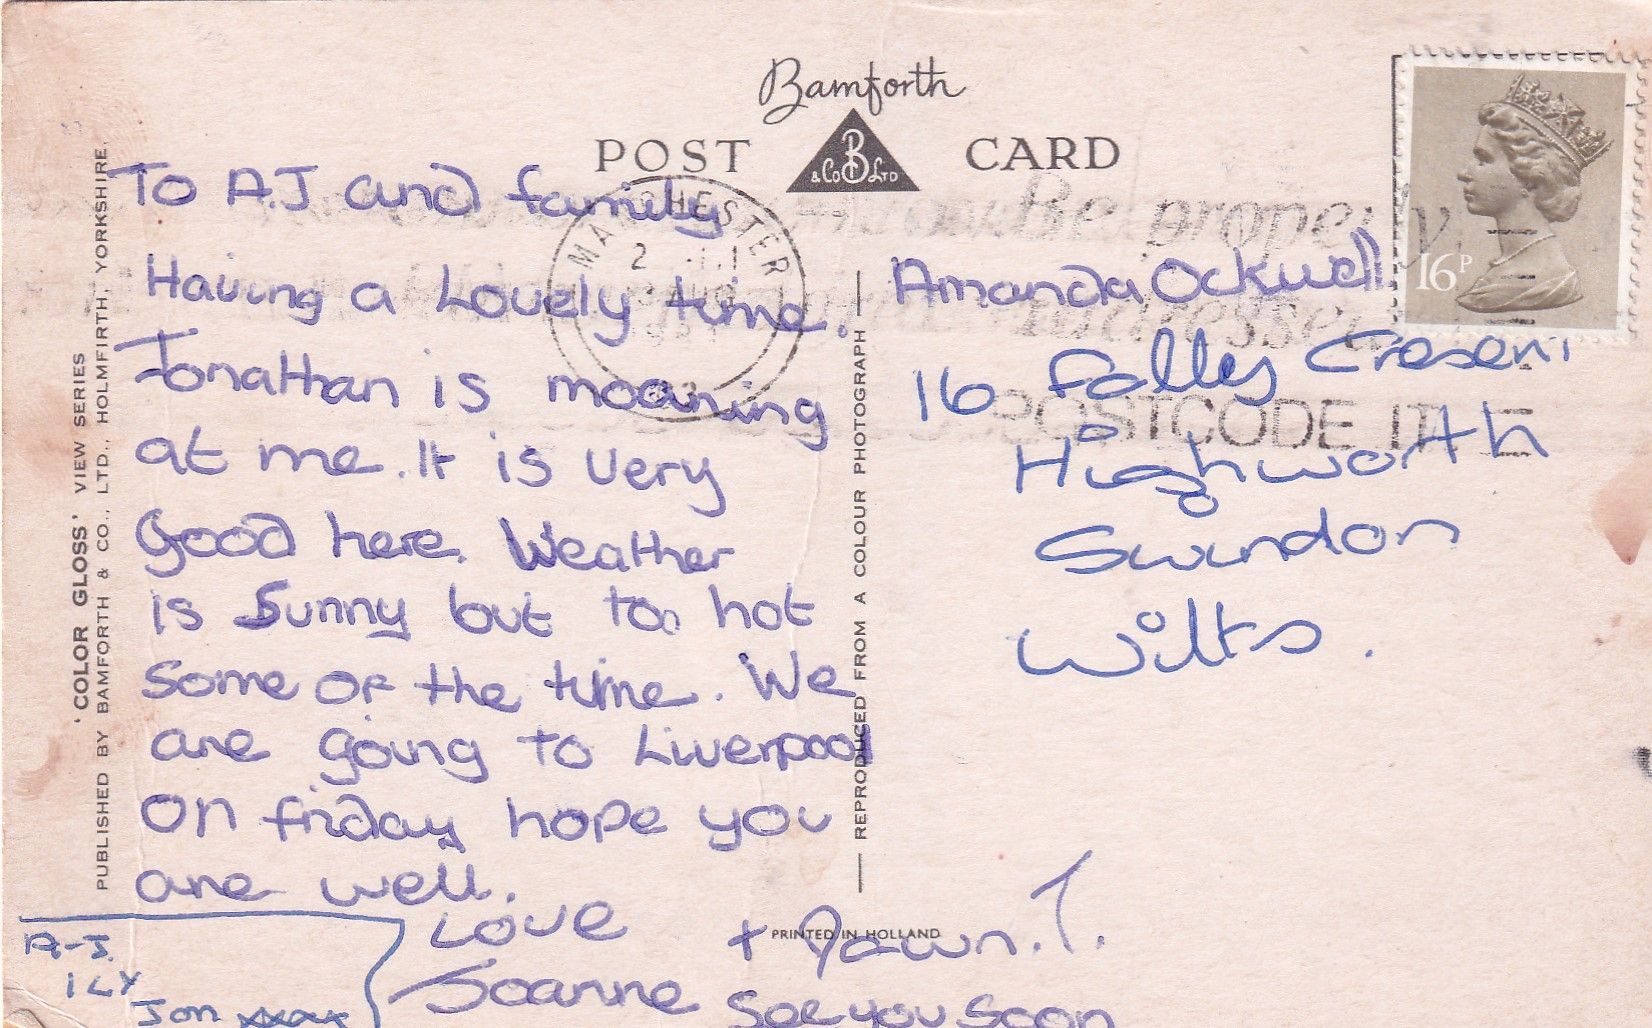 Bamforth
POST CARD
B
& Co LTD
16P
MANCHESTER
2
Be properly
addressed
POSTCODE IT
To A.J and family
Having a Lovely time.
Jonathan is moaning
at me. It is very
Good here. Weather
is Sunny but to hot
some of the time. We
are going to Liverpool
on friday hope you
are well.
Love
Joanne
+ Dawn. T.
See you Soon
A-J.
ILY
Jon
Amanda Ockwell
16 Folly Cresent
Highworth
Swindon
Wilts.
'COLOR GLOSS' VIEW SERIES
PUBLISHED BY BAMFORTH & CO., LTD., HOLMFIRTH, YORKSHIRE.
REPRODUCED FROM A COLOUR PHOTOGRAPH
PRINTED IN HOLLAND